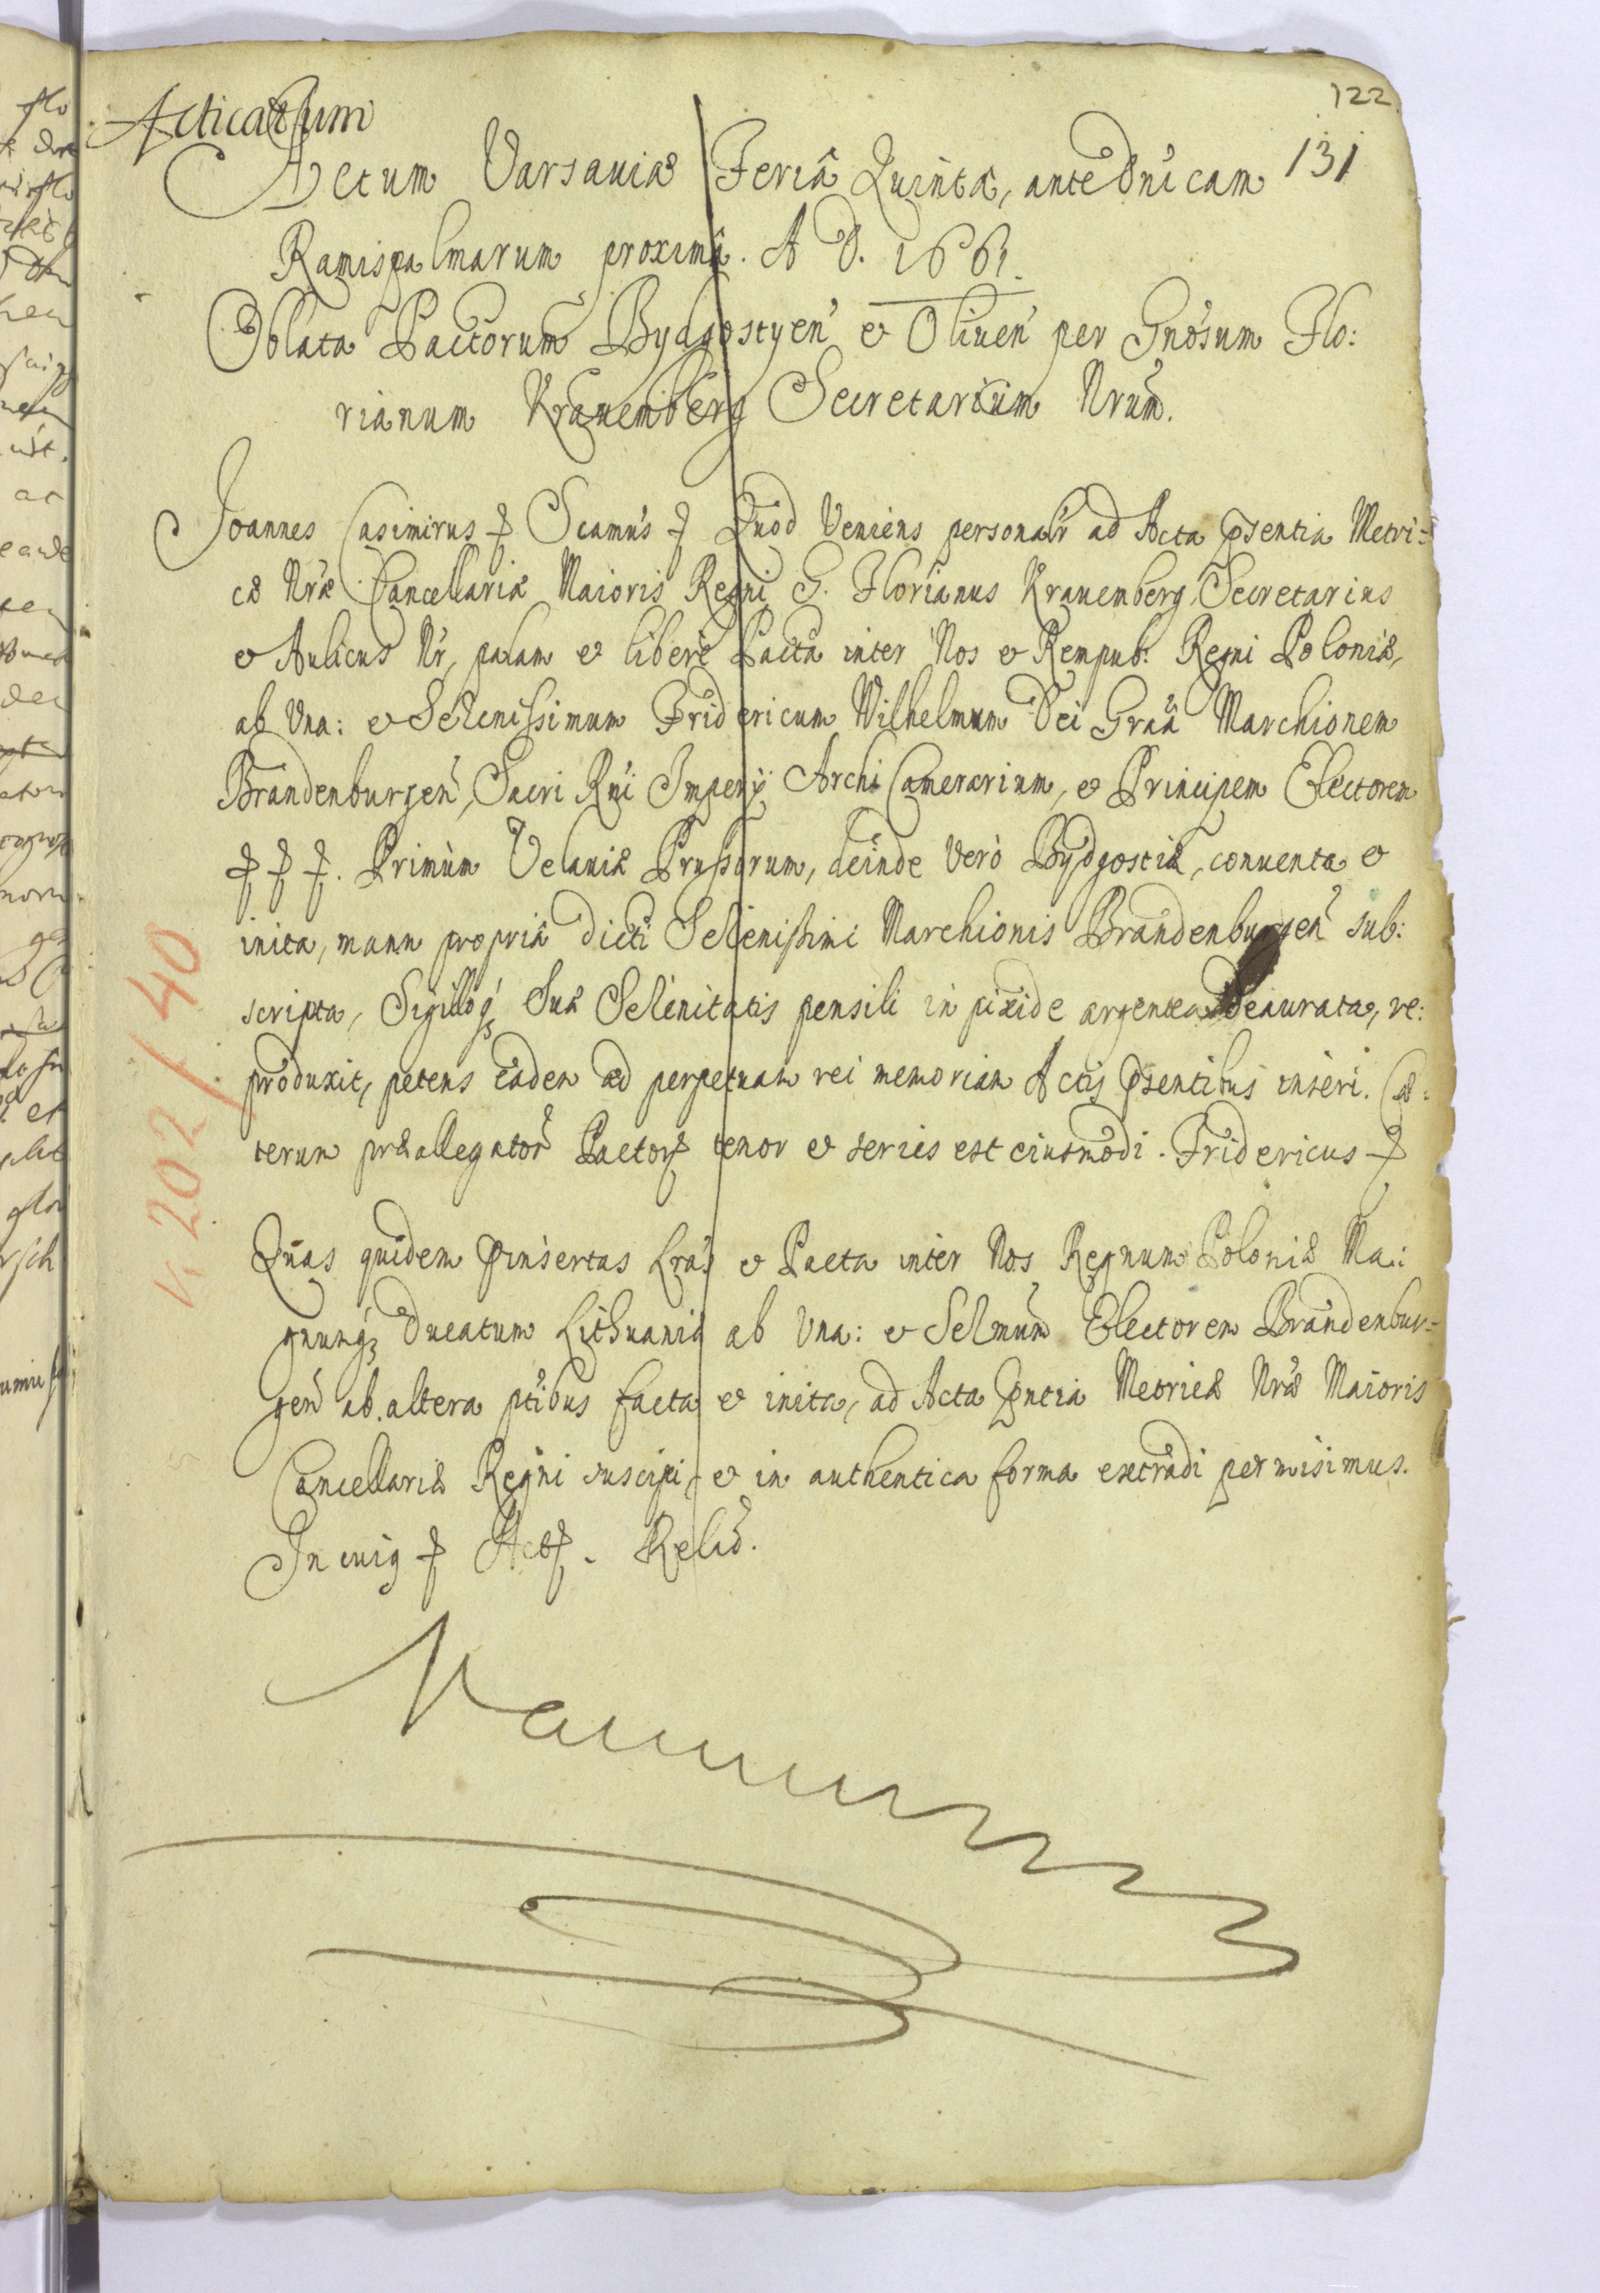 122
131
Acticatum
Actum Varsaviæ Feriâ Quintâ, ante Dnicam
Ramispalmarum proximâ. A D. 1661.
Oblata Pactorum Bydgostyen̄ et Oliuen̄ per Gnosum Flo:
rianum Krauemberg Secretarium Nrum̄.
Joannes Casimirus Quod Veniens personalr̄ ad Acta pn̄sentia Metri-
cæ Nr̄æ Cancellariæ Maioris Regni G. Florianus Krauemberg Secretarius
et Aulicus Nr̄, palam et liberè Pacta inter Nos et Rempub: Regni Poloniæ,
ab Vna: et Serenissimum Fridericum Wilhelmum Dei Gra͠a Marchionem
Brandenburgen̄, Sacri Rn̄i Imperij Archi Camerarium, et Principem Electorem
Primùm Velaviæ Prussorum, deinde Verò Bydgostiæ, conuenta et
inita, manu propriâ dicti Serenissimi Marchionis Brandenburgen̄ sub:
scripta, Sigilloq; Suæ Serenitatis pensili in pixide argentea deaurata, re:
produxit, petens eadem ad perpetuam rei memoriam Actis pn̄sentibus inseri. Cæ:
terum præallegator̄ Pactor̄ tenor et series est eiusmodi. Fridericus
Quas quidem pr̄insertas Lrās et Pacta inter Nos Regnum Poloniæ Ma:
gnumq; Ducatum Lithuaniæ ab Vna: et Sermum̄ Electorem Brandenbur-
gen̄ ab altera ptibus facta et inita, ad Acta pn̄tia Metricæ Nr̄æ Maioris
Cancellariæ Regni suscipi, et in authentica forma extradi permisimus.
In cuig Act. Relið.
V. 202 / 40